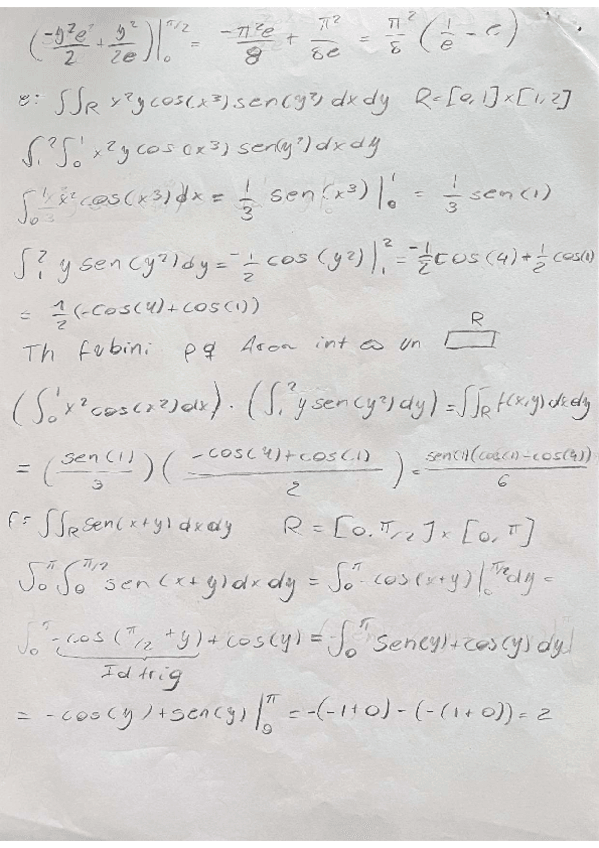 (-y²e/2 + y²/2e)|₀^π/2 = -π²e/8 + π²/8e = π²/8 (1/e - e)
e: ∬R x²y cos(x³) sen(y²) dx dy R=[0,1]×[1,2]
∫₁²∫₀¹ x²y cos(x³) sen(y²) dx dy
∫₀¹ x² cos(x³) dx = 1/3 sen(x³)|₀¹ = 1/3 sen(1)
∫₁² y sen(y²) dy = -1/2 cos(y²)|₁² = -1/2 cos(4) + 1/2 cos(1)
= 1/2 (-cos(4) + cos(1))
R
Th fubini pq int un
(∫₀¹ x² cos(x²) dx) · (∫₁² y sen(y²) dy) = ∬R f(x,y) dx dy
= (sen(1)/3) (-cos(4) + cos(1)/2) = sen(1)(cos(1) - cos(4))/6
f: ∬R sen(x+y) dx dy R = [0, π/2] × [0, π]
∫₀^π ∫₀^π/2 sen(x+y) dx dy = ∫₀^π -cos(x+y)|₀^π/2 dy =
∫₀^π -cos(π/2 + y) + cos(y) = ∫₀^π sen(y) + cos(y) dy
Id trig
= -cos(y) + sen(y)|₀^π = -(-1+0) - (-(1+0)) = 2